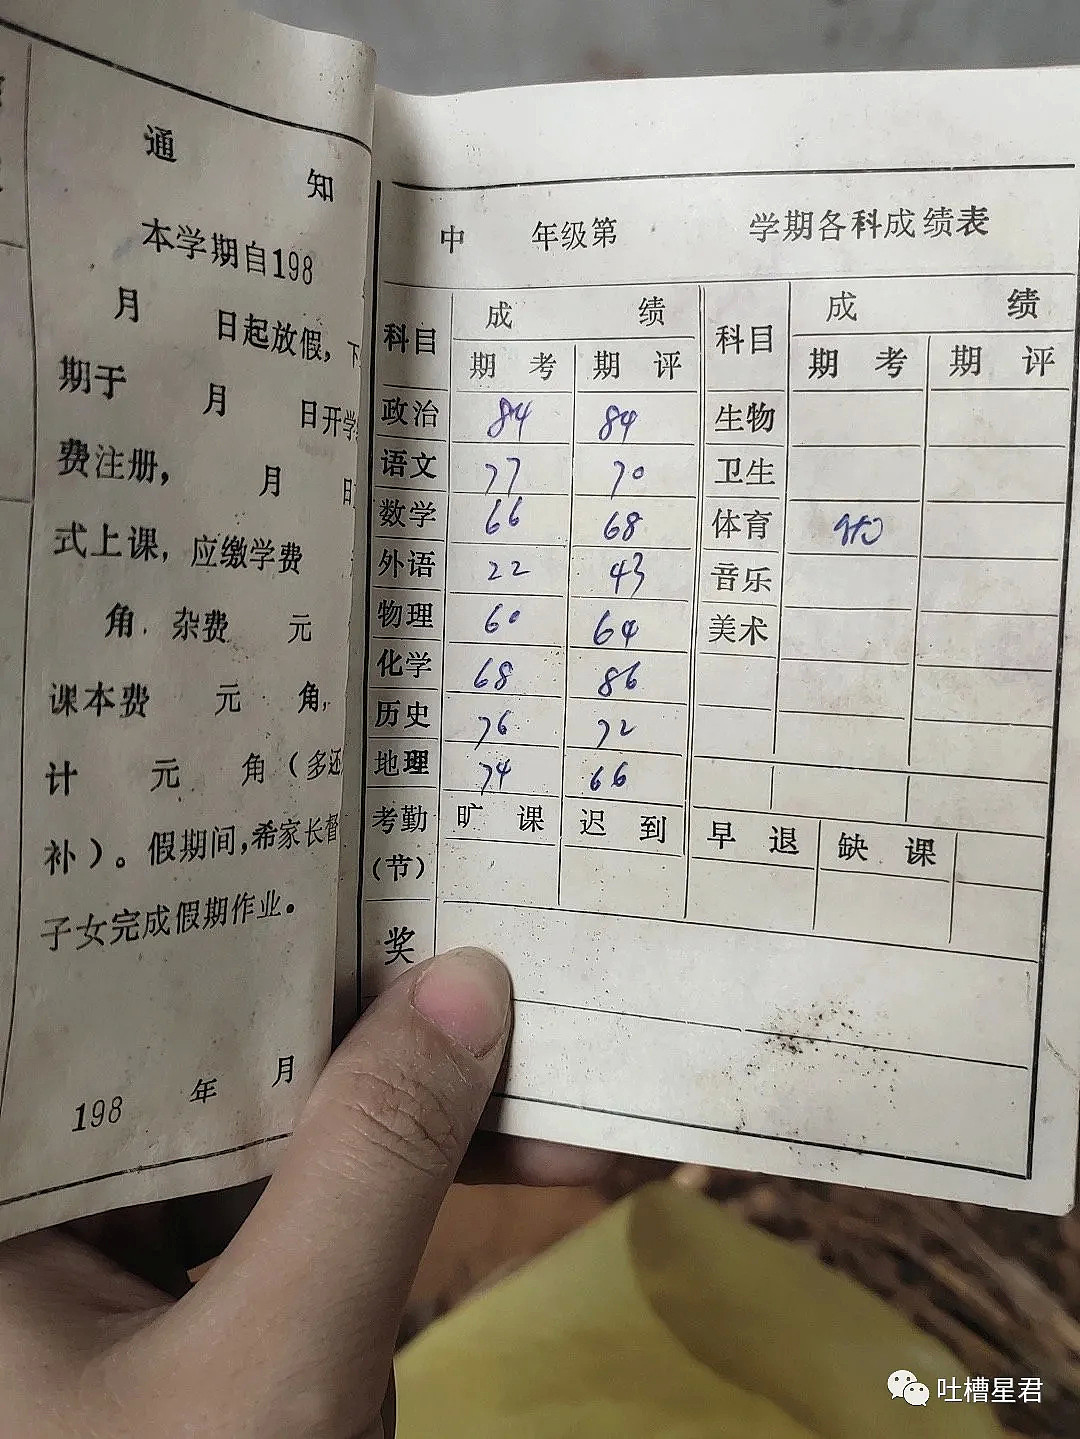 通
知
本学期自198
月 日起放假，下
期于 月 日开学
费注册， 月 日
式上课，应缴学费
角．杂费 元
课本费 元 角，
计 元 角（多还
补）。假期间，希家长督
子女完成假期作业。
198 年 月
中 年级第 学期各科成绩表
科目 成 绩 科目 成 绩
期 考 期 评 期 考 期 评
政治 84 84 生物
语文 77 70 卫生
数学 66 68 体育
外语 22 43 音乐
物理 60 64 美术
化学 68 86
历史 76 72
地理 74 66
考勤 旷 课 迟 到 早 退 缺 课
（节）
奖
吐槽星君